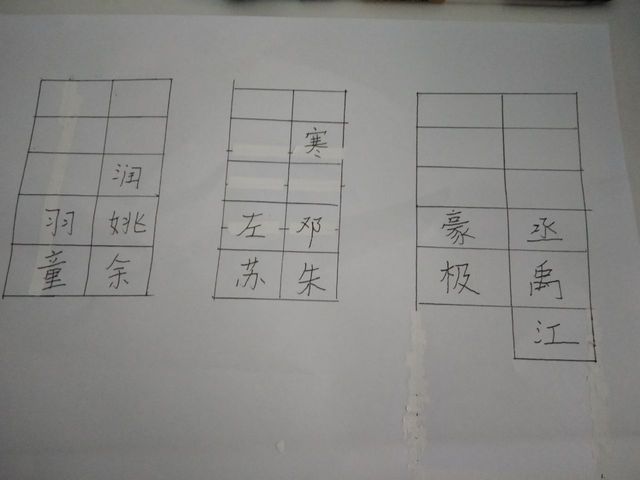 寒
润
羽 姚 左 邓 豪 丞
童 余 苏 朱 极 禹
江